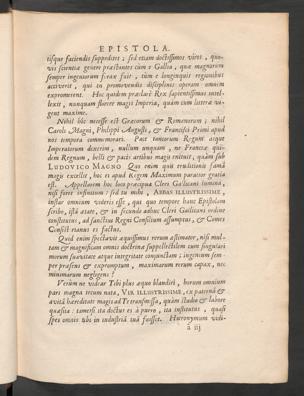 EPISTOLA.
tisque faciendis suppeditet; sed etiam doctissimos viros, quo-
vis scientiæ genere præstantes cùm è Gallia, quæ magnorum
semper ingeniorum ferax fuit, tùm è longinquis regionibus
acciverit, qui in promovendis disciplinis operam omnem
expromerent. Hoc quidem præclarè Rex sapientissimus intel-
lexit, nunquam florere magis Imperia, quàm cùm litteræ vi-
gent maximè.
Nihil hîc necesse est Græcorum & Romanorum; nihil
Caroli Magni, Philippi Augusti, & Francisci Primi apud
nos tempora commemorari. Pace tantorum Regum atque
Imperatorum dixerim, nullum unquam, ne Franciæ qui-
dem Regnum, belli & pacis artibus magis enituit, quàm sub
LUDOVICO MAGNO Quo enim quis eruditionis famâ
magis excellit, hoc is apud Regem Maximum paratior gratia
est. Appellarem hoc loco præcipua Cleri Gallicani lumina,
nisi foret infinitum: sed tu mihi, ABBAS ILLUSTRISSIME,
instar omnium videris esse, qui quo tempore hanc Epistolam
scribo, istâ ætate, & in secundo adhuc Cleri Gallicani ordine
constitutus, ad sanctius Regni Consilium assumptus, & Comes
Consistorianus es factus.
Quid enim spectavit æquissimus rerum æstimator, nisi mul-
tam & magnificam omnis doctrinæ supellectilem cum singulari
morum suavitate atque integritate conjunctam; ingenium sem-
per præsens & expromptum, maximarum rerum capax, nec
minimarum negligens?
Verùm ne videar Tibi plus æquo blandiri, horum omnium
pars magna tecum nata, VIR ILLUSTRISSIME, ex paternâ &
avitâ hæreditate magis ad Te transmissa, quàm studio & labore
quæsita: tametsi ita doctus es à puero, ita institutus, quasi
spes omnis tibi in industriâ tuâ fuisset. Hieronymum vidi-
ã iij